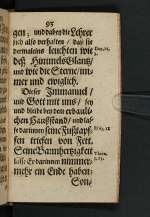 93
gen; und dabey die Lehrer
sich also verhalten / daß sie
dermaleinst leuchten wie
deß Himmels Glantz/
und wie die Sterne/ im-
mer und ewiglich.
Dieser Immanuel /
und Gott mit uns / sey
und bleibe bey dem erbauli-
chen Haußstand / und las-
se darinnen seine Fußstapf-
fen triefen von Fett.
Seine Barmhertzigkeit
lasse Er darinnen nimmer-
mehr ein Ende haben:
Son-